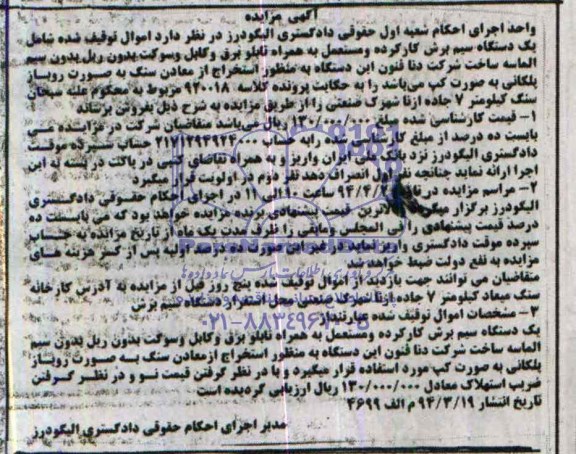 آگهی مزایده
واحد اجرای احکام شعبه اول حقوقی دادگستری الیگودرز در نظر دارد اموال توقیف شده شامل
یک دستگاه سیم برش کارکرده ومستعمل به همراه تابلو برق وکابل وسوکت بدون ریل بدون سیم
الماسه ساخت شرکت دنا فنون این دستگاه به منظور استخراج از معادن سنگ به صورت روباز
پلکانی به صورت کپ می‌باشد را به حکایت پرونده کلاسه ۹۲۰۰۱۸ مربوط به محکوم علیه
سنگ کیلومتر ۷ جاده ازنا شهرک صنعتی را از طریق مزایده به شرح ذیل بفروش برساند
۱- قیمت کارشناسی شده مبلغ ۱۳۰/۰۰۰/۰۰۰ ریال می‌باشد متقاضیان شرکت در مزایده می
بایست ده درصد از مبلغ کارشناسی شده رابه حساب حساب سپرده موقت
دادگستری الیگودرز نزد بانک ملی ایران واریز و به همراه تقاضای کتبی در پاکت در بسته به این
اجرا ارائه نماید چنانچه نفر اول انصراف دهد نفر دوم در اولویت قرار میگیرد
۲- مراسم مزایده در ساعت ۱۰ الی ۱۱ در اجرای احکام حقوقی دادگستری
الیگودرز برگزار بالاترین قیمت پیشنهادی برنده مزایده خواهد بود که می بایست ده
درصد قیمت پیشنهادی را فی المجلس ومابقی را ظرف مدت یک ماه از تاریخ مزایده به حساب
سپرده موقت دادگستری واریز نماید در غیر این صورت ده درصد اولیه پس از کسر هزینه های
مزایده به نفع دولت ضبط خواهد شد
متقاضیان می توانند جهت بازدید از اموال توقیف شده پنج روز قبل از مزایده به آدرس کارخانه
سنگ میعاد کیلومتر ۷ جاده ازنا شهرک صنعتی محل استقرار دستگاه سیم برش
۳- مشخصات اموال توقیف شده عبارتنداز
یک دستگاه سیم برش کارکرده ومستعمل به همراه تابلو برق وکابل وسوکت بدون ریل بدون سیم
الماسه ساخت شرکت دنا فنون این دستگاه به منظور استخراج ازمعادن سنگ به صورت روباز
پلکانی به صورت کپ مورد استفاده قرار میگیرد و با در نظر گرفتن قیمت نو و در نظر گرفتن
ضریب استهلاک معادل ۱۳۰/۰۰۰/۰۰۰ ریال ارزیابی گردیده است
تاریخ انتشار ۹۴/۳/۱۹ م الف ۴۶۹۹
مدیر اجرای احکام حقوقی دادگستری الیگودرز
۰۲۱-۸۸۳۴۹۶۷۰-۵